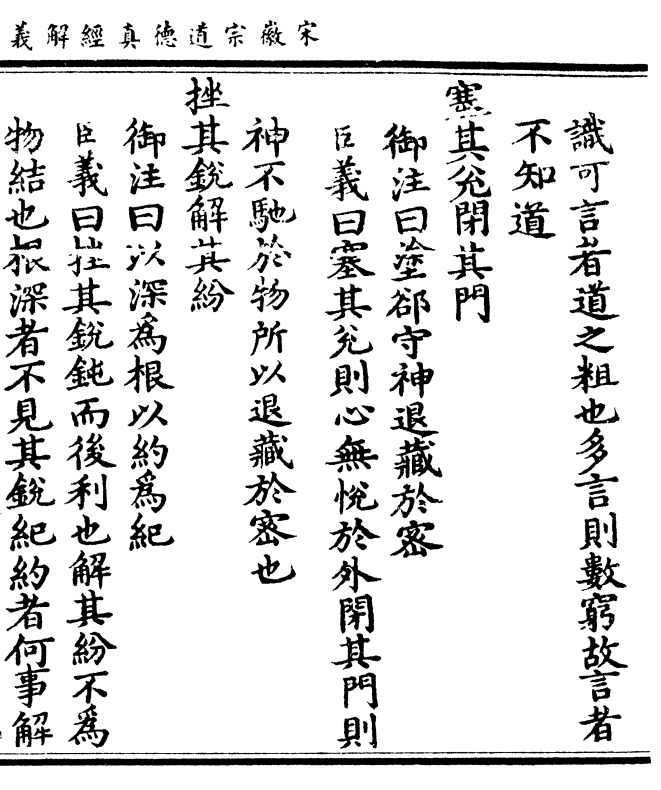 宋徽宗道德真經解義
識可言者道之粗也多言則數窮故言者
不知道
塞其兊閉其門
御注曰塗郤守神退藏於密
臣義曰塞其兊則心無悅於外閉其門則
神不馳於物所以退藏於密也
挫其銳解其紛
御注曰以深為根以約為紀
臣義曰挫其銳鈍而後利也解其紛不為
物結也根深者不見其銳紀約者何事解